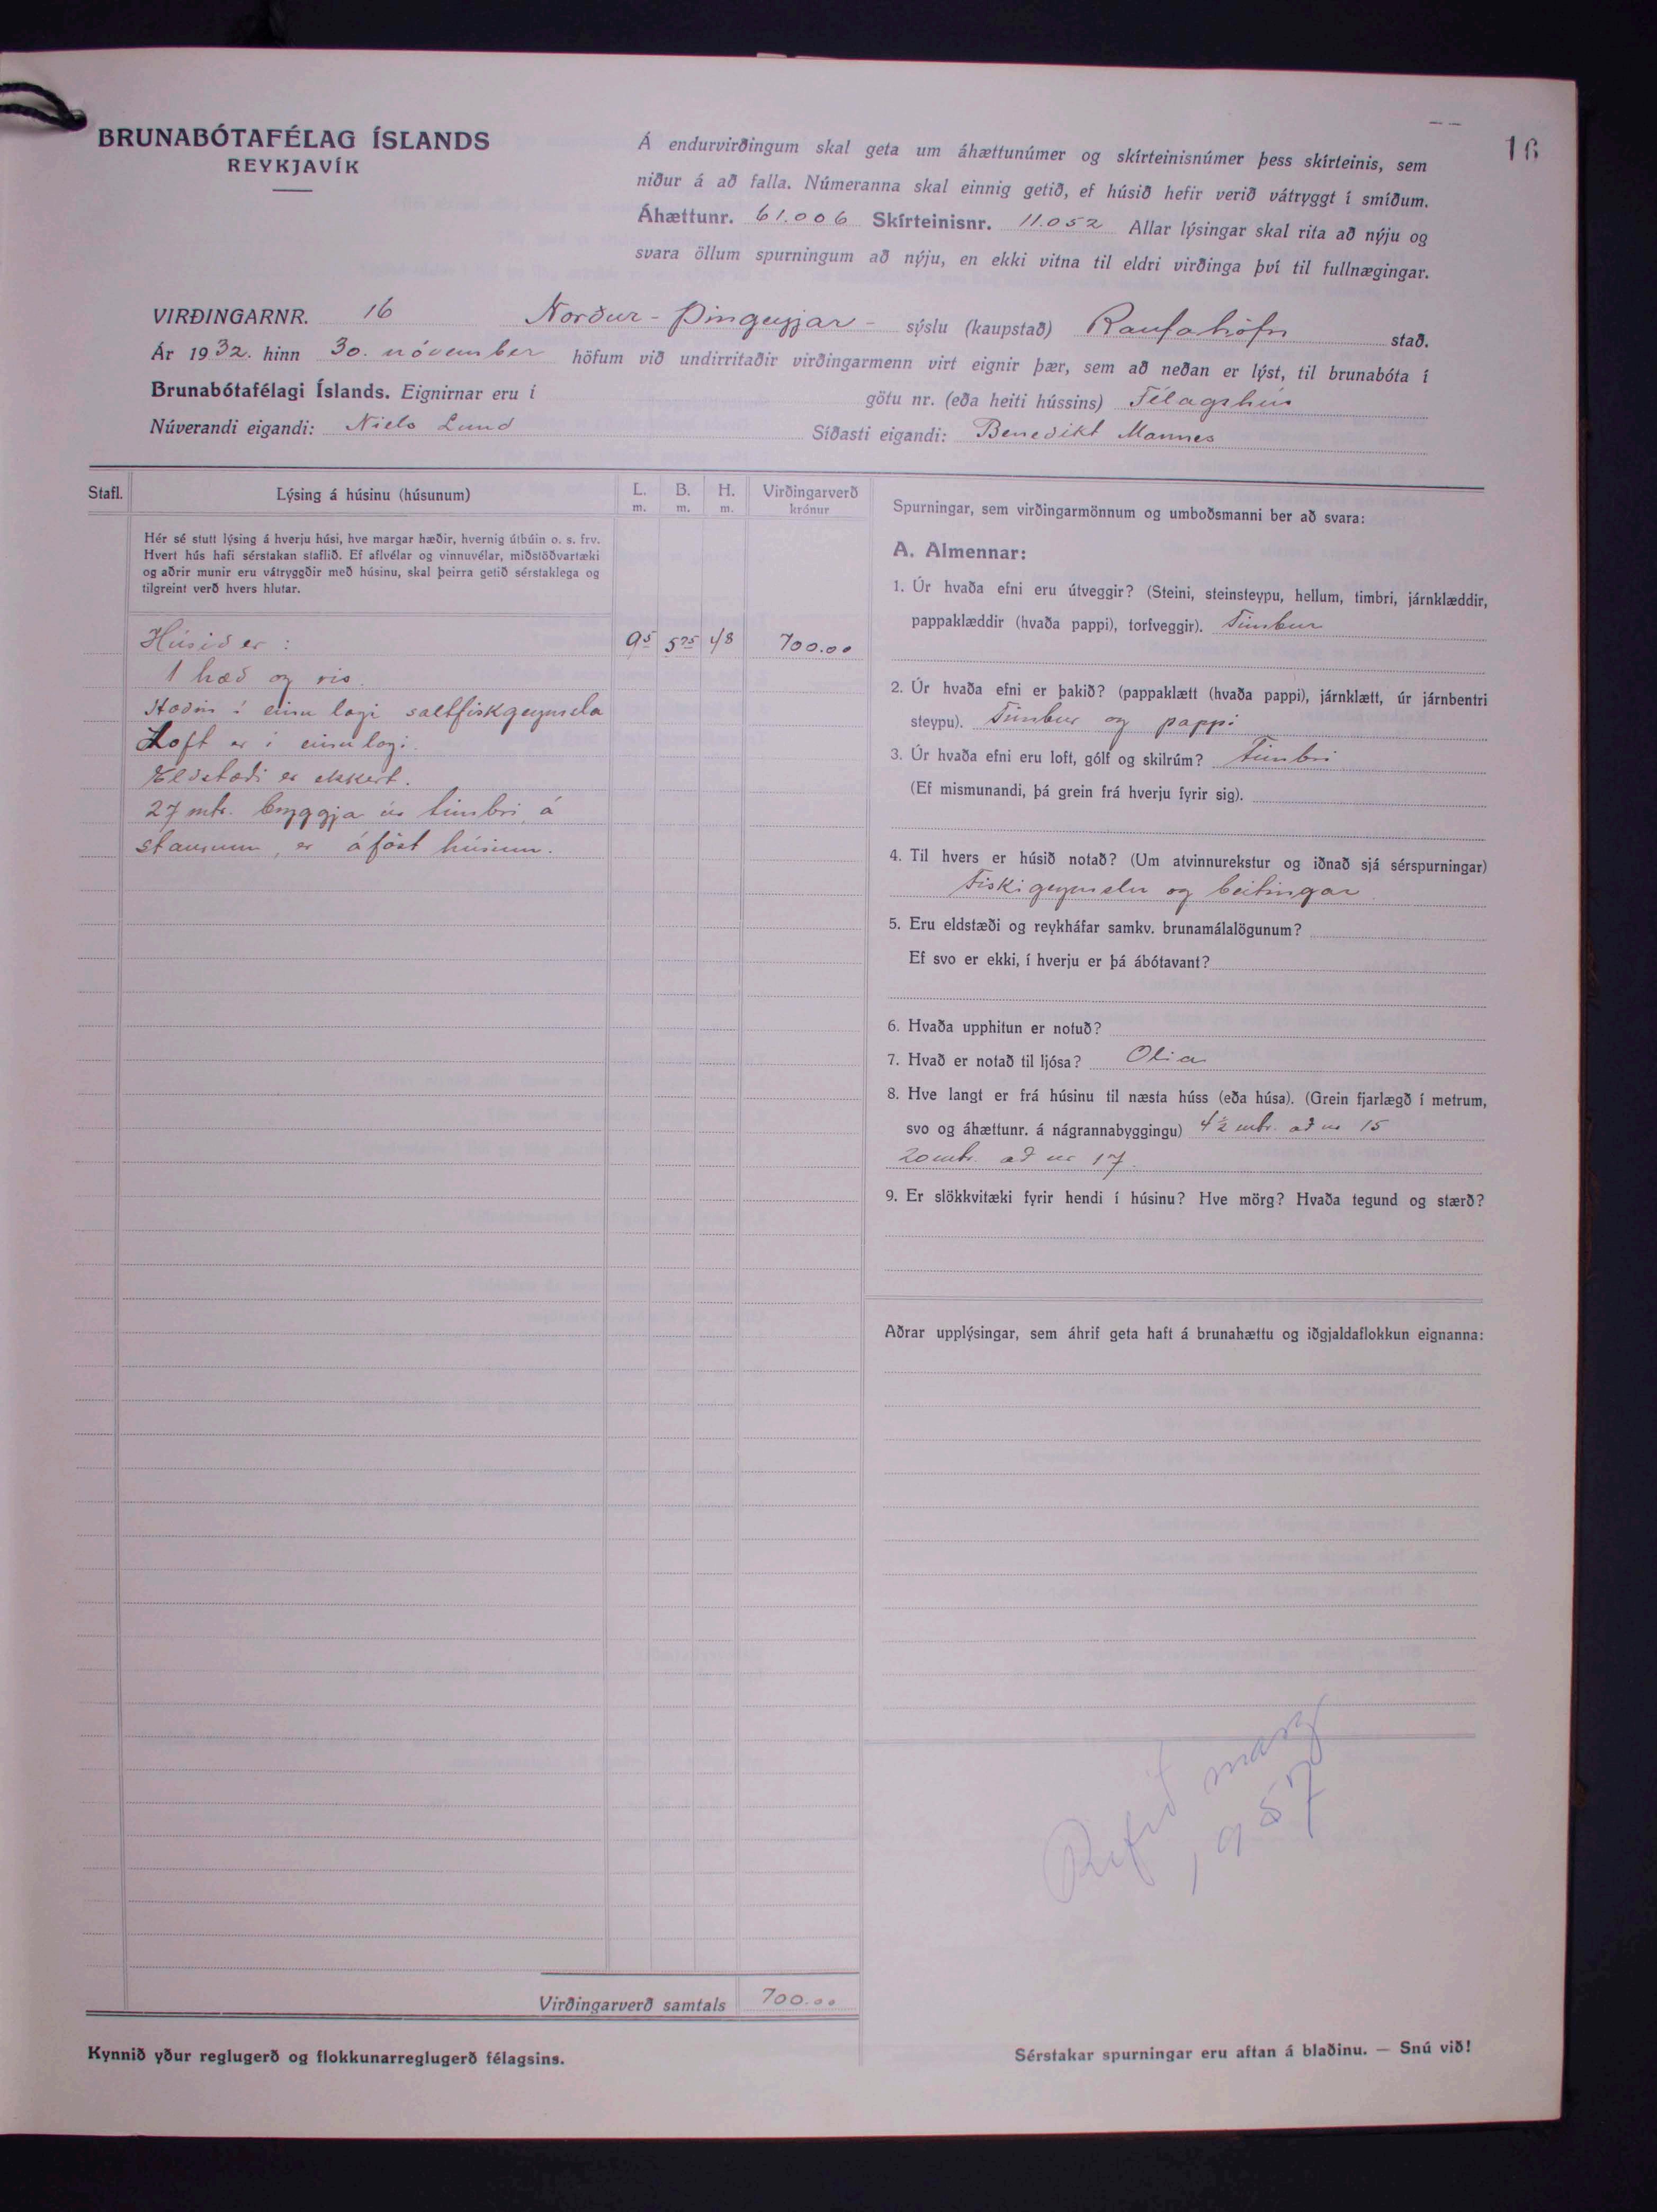 16
BRUNABÓTAFÉLAG ÍSLANDS
REYKJAVÍK
Á endurvirðingum skal geta um áhættunúmer og skírteinisnúmer þess skírteinis, sem
niður á að falla. Númeranna skal einnig getið, ef húsið hefir verið vátryggt í smíðum.
Áhættunr. 61.006 Skírteinisnr. 11.052 Allar lýsingar skal rita að nýju og
svara öllum spurningum að nýju, en ekki vitna til eldri virðinga því til fullnægingar.
VIRÐINGARNR. 16 Norður-Þingeyjar- sýslu (kaupstað) Raufarhöfn stað.
Ár 1932. hinn 30. nóvember höfum við undirritaðir virðingarmenn virt eignir þær, sem að neðan er lýst, til brunabóta í
Brunabótafélagi Íslands. Eignirnar eru í götu nr. (eða heiti hússins) Félagshús
Núverandi eigandi: Niels Lund Síðasti eigandi: Benedikt Mannes
Stafl.
Lýsing á húsinu (húsunum)
L. m.
B. m.
H. m.
Virðingarverð krónur
Hér sé stutt lýsing á hverju húsi, hve margar hæðir, hvernig útbúin o. s. frv.
Hvert hús hafi sérstakan staflið. Ef aflvélar og vinnuvélar, miðstöðvartæki
og aðrir munir eru vátryggðir með húsinu, skal þeirra getið sérstaklega og
tilgreint verð hvers hlutar.
Húsið er : 9 5 5 75 4/8 700.00
1 hæð og ris.
Hæðin í einu lagi saltfiskgeymsla
Loft er í einu lagi.
Eldstæði er ekkert.
27 mtr. bryggja úr timbri, á
staurum, er áföst húsinu.
Virðingarverð samtals 700.00
Spurningar, sem virðingarmönnum og umboðsmanni ber að svara:
A. Almennar:
1. Úr hvaða efni eru útveggir? (Steini, steinsteypu, hellum, timbri, járnklæddir,
pappaklæddir (hvaða pappi), torfveggir). Timbur
2. Úr hvaða efni er þakið? (pappaklætt (hvaða pappi), járnklætt, úr járnbentri
steypu). Timbur og pappi
3. Úr hvaða efni eru loft, gólf og skilrúm? Timbri
(Ef mismunandi, þá grein frá hverju fyrir sig).
4. Til hvers er húsið notað? (Um atvinnurekstur og iðnað sjá sérspurningar)
Fiskigeymslu og beitingar.
5. Eru eldstæði og reykháfar samkv. brunamálalögunum?
Ef svo er ekki, í hverju er þá ábótavant?
6. Hvaða upphitun er notuð?
7. Hvað er notað til ljósa? Olia
8. Hve langt er frá húsinu til næsta húss (eða húsa). (Grein fjarlægð í metrum,
svo og áhættunr. á nágrannabyggingu) 4½ mtr. að nr 15
20 mtr. að nr 17.
9. Er slökkvitæki fyrir hendi í húsinu? Hve mörg? Hvaða tegund og stærð?
Aðrar upplýsingar, sem áhrif geta haft á brunahættu og iðgjaldaflokkun eignanna:
Rifið marz
1957
Kynnið yður reglugerð og flokkunarreglugerð félagsins.
Sérstakar spurningar eru aftan á blaðinu. — Snú við!